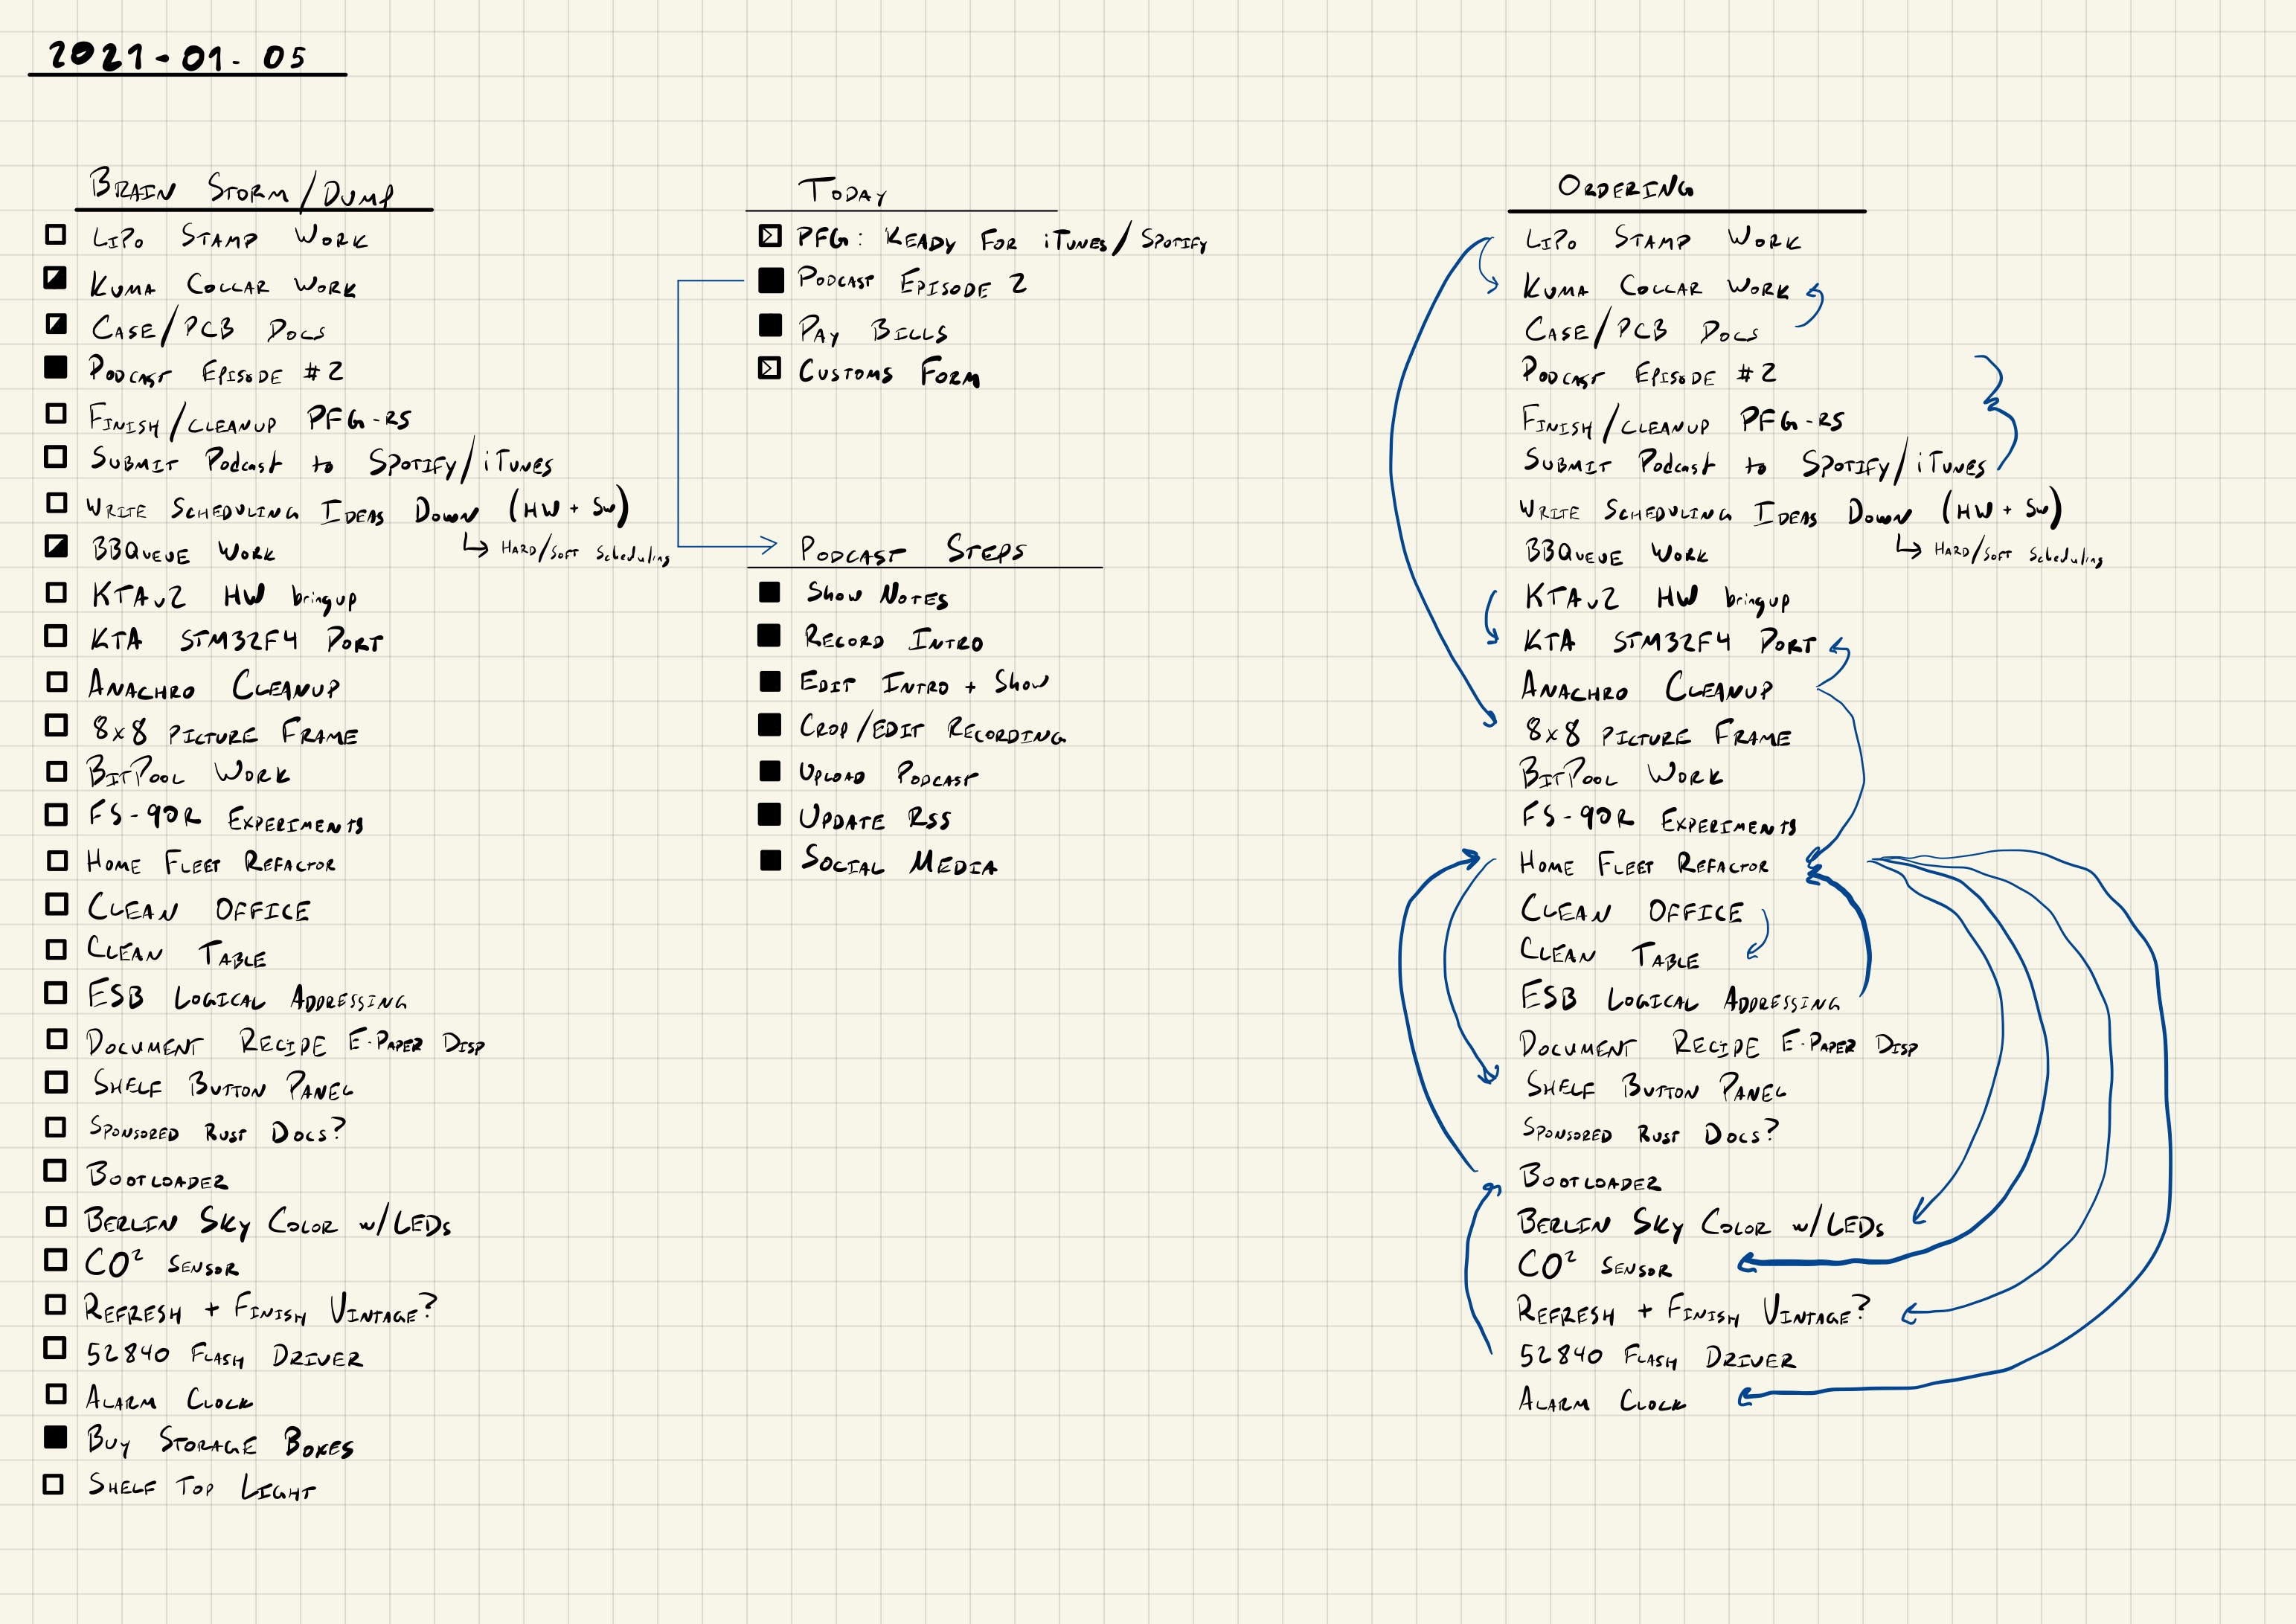 2021-01-05
BRAIN STORM/DUMP
LiPo STAMP WORK
KUMA COLLAR WORK
CASE/PCB DOCS
PODCAST EPISODE #2
FINISH/CLEANUP PFG-RS
SUBMIT Podcast to SPOTIFY/iTUNES
WRITE SCHEDULING IDEAS DOWN (HW + SW)
↳ HARD/SOFT Scheduling
BBQUEUE WORK
KTAv2 HW bringup
KTA STM32F4 PORT
ANACHRO CLEANUP
8x8 PICTURE FRAME
BITPOOL WORK
FS-90R EXPERIMENTS
HOME FLEET REFACTOR
CLEAN OFFICE
CLEAN TABLE
ESB LOGICAL ADDRESSING
DOCUMENT RECIPE E-PAPER DISP
SHELF BUTTON PANEL
SPONSORED RUST DOCS?
BOOTLOADER
BERLIN SKY COLOR w/LEDs
CO² SENSOR
REFRESH + FINISH VINTAGE?
52840 FLASH DRIVER
ALARM CLOCK
BUY STORAGE BOXES
SHELF TOP LIGHT
TODAY
PFG: READY FOR iTUNES/SPOTIFY
PODCAST EPISODE 2
PAY BILLS
CUSTOMS FORM
PODCAST STEPS
SHOW NOTES
RECORD INTRO
EDIT INTRO + SHOW
CROP/EDIT RECORDING
UPLOAD PODCAST
UPDATE RSS
SOCIAL MEDIA
ORDERING
LiPo STAMP WORK
KUMA COLLAR WORK
CASE/PCB DOCS
PODCAST EPISODE #2
FINISH/CLEANUP PFG-RS
SUBMIT Podcast to SPOTIFY/iTUNES
WRITE SCHEDULING IDEAS DOWN (HW + SW)
↳ HARD/SOFT Scheduling
BBQUEUE WORK
KTAv2 HW bringup
KTA STM32F4 PORT
ANACHRO CLEANUP
8x8 PICTURE FRAME
BITPOOL WORK
FS-90R EXPERIMENTS
HOME FLEET REFACTOR
CLEAN OFFICE
CLEAN TABLE
ESB LOGICAL ADDRESSING
DOCUMENT RECIPE E-PAPER DISP
SHELF BUTTON PANEL
SPONSORED RUST DOCS?
BOOTLOADER
BERLIN SKY COLOR w/LEDs
CO² SENSOR
REFRESH + FINISH VINTAGE?
52840 FLASH DRIVER
ALARM CLOCK